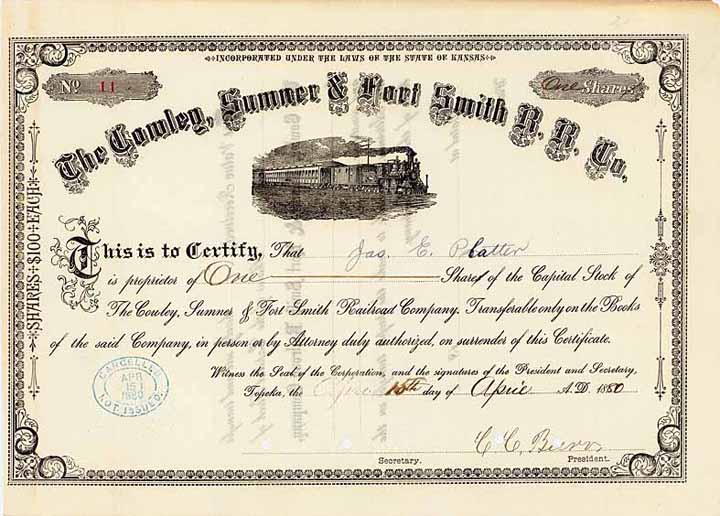 INCORPORATED UNDER THE LAWS OF THE STATE OF KANSAS
No 11 One Shares
The Cowley, Sumner & Fort Smith R. R. Co.
SHARES $100 EACH
This is to Certify, That Jas. E. Platter
is proprietor of One Shares of the Capital Stock of
The Cowley, Sumner & Fort Smith Railroad Company. Transferable only on the Books
of the said Company, in person or by Attorney duly authorized, on surrender of this Certificate.
Witness the Seal of the Corporation, and the signatures of the President and Secretary,
Topeka, the 15th day of April A.D. 1880
CANCELLED
APR
15
1880
NOT ISSUED.
C. C.
Secretary. President.